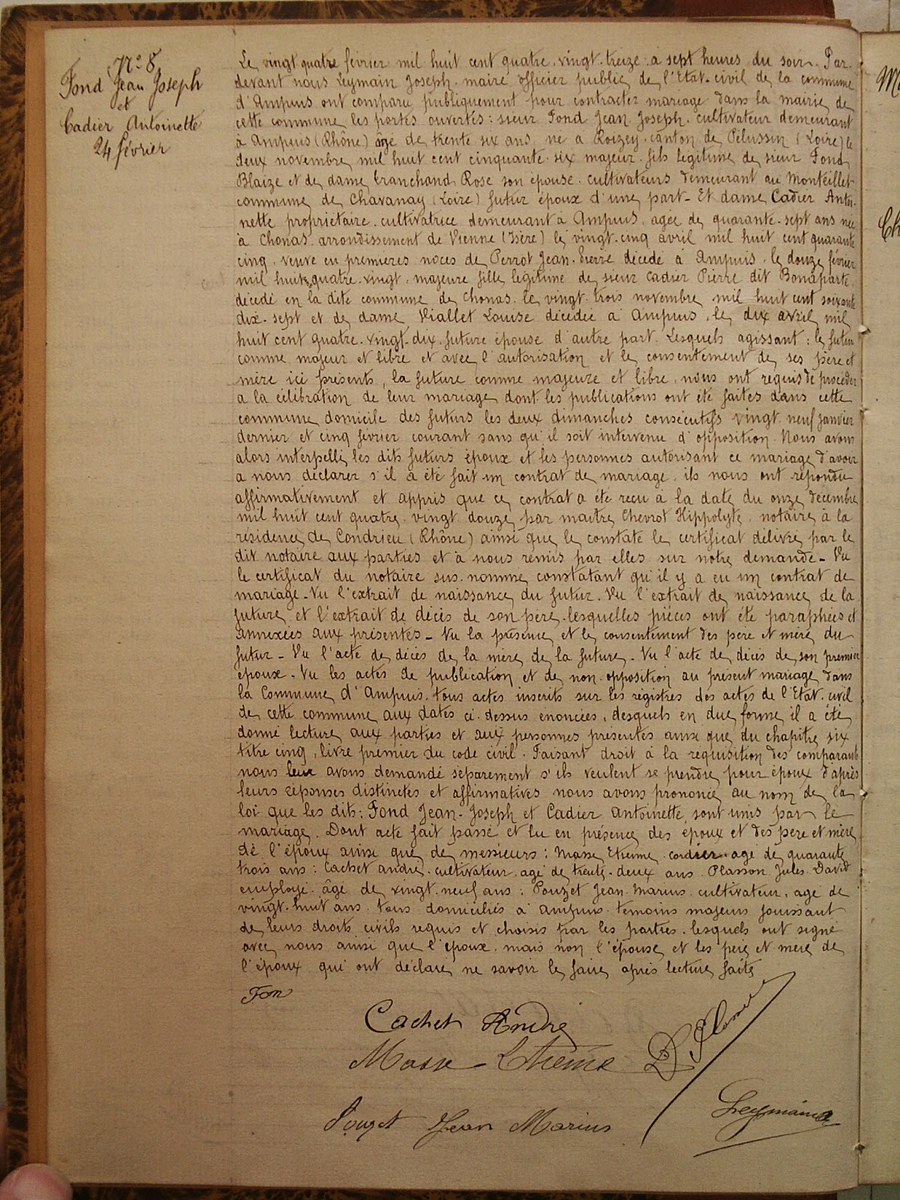 N° 8
Fond Jean Joseph
et
Cadier Antoinette
24 février
Le vingt quatre février mil huit cent quatre-vingt-treize à sept heures du soir. Par
devant nous Leymain Joseph, maire officier public de l'Etat-civil de la commune
d'Ampuis ont comparu publiquement pour contracter mariage dans la mairie de
cette commune les portes ouvertes : sieur Fond Jean Joseph cultivateur demeurant
à Ampuis (Rhône) âgé de trente six ans né à Roizey canton de Pélussin (Loire) le
deux novembre mil huit cent cinquante-six majeur fils légitime de sieur Fond
Blaize et de dame Branchand Rose son épouse cultivateurs demeurant au Monteillet
commune de Chavanay (Loire) futur époux d'une part. Et dame Cadier Antoi-
nette propriétaire cultivatrice demeurant à Ampuis, agée de quarante-sept ans née
à Chonas arrondissement de Vienne (Isère) le vingt-cinq avril mil huit cent quarante
cinq, veuve en premières noces de Perrot Jean Pierre décédé à Ampuis le douze février
mil huit quatre-vingt, majeure fille légitime de sieur Cadier Pierre dit Bonaparte,
décédé en la dite commune de Chonas le vingt-trois novembre mil huit cent soixante
dix-sept et de dame Viallet Louise décédée à Ampuis, le dix avril mil
huit cent quatre-vingt-dix future épouse d'autre part. Lesquels agissant : le futur
comme majeur et libre et avec l'autorisation et le consentement de ses père et
mère ici présents, la future comme majeure et libre, nous ont requis de procéder
à la célébration de leur mariage dont les publications ont été faites dans cette
commune domicile des futurs les deux dimanches consécutifs vingt-neuf janvier
dernier et cinq février courant sans qu'il soit intervenu d'opposition. Nous avons
alors interpellé les dits futurs époux et les personnes autorisant ce mariage d'avoir
à nous déclarer s'il a été fait un contrat de mariage, ils nous ont répondu
affirmativement et appris que ce contrat a été reçu à la date du onze décembre
mil huit cent quatre-vingt douze par maître Chevrot Hippolyte, notaire à la
résidence de Condrieu (Rhône) ainsi que le constate le certificat délivré par le
dit notaire aux parties et à nous remis par elles sur notre demande - Vu
le certificat du notaire sus-nommé constatant qu'il y a eu un contrat de
mariage. Vu l'extrait de naissance du futur. Vu l'extrait de naissance de la
future et l'extrait de décès de son père, lesquelles pièces ont été paraphées et
annexées aux présentes - Vu la présence et le consentement des père et mère du
futur - Vu l'acte de décès de la mère de la future. Vu l'acte de décès de son premier
époux. Vu les actes de publication et de non opposition au présent mariage dans
la Commune d'Ampuis. tous actes inscrits sur les registres des actes de l'Etat-civil
de cette commune aux dates ci-dessus énoncées, desquels en due forme il a été
donné lecture aux parties et aux personnes présentes ainsi que du chapitre six
titre cinq, livre premier du code civil. Faisant droit à la réquisition des comparants
nous leur avons demandé séparément s'ils veulent se prendre pour époux d'après
leurs réponses distinctes et affirmatives nous avons prononcé au nom de la
loi que les dits : Fond Jean-Joseph et Cadier Antoinette sont unis par le
mariage. Dont acte fait passé et lu en présence des époux et des père et mère
de l'époux ainsi que de messieurs : Masse Etienne cordier agé de quarante
trois ans : Cachet André cultivateur, agé de trente-deux ans. Plasson Jules David
employé âgé de vingt-neuf ans : Pouzet Jean Marius cultivateur, agé de
vingt-huit ans tous domiciliés à Ampuis témoins majeurs jouissant
de leurs droits civils requis et choisis par les parties, lesquels ont signé
avec nous ainsi que l'époux, mais non l'épouse et les père et mère de
l'époux qui ont déclaré ne savoir le faire après lecture faite
Fon
Cachet André
Masse Etienne
Pouzet Jean Marius
Leymain